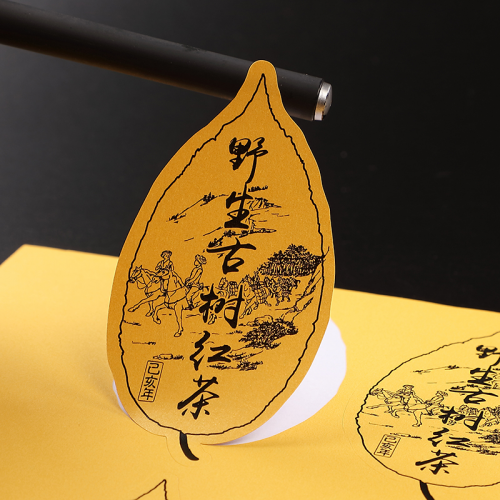 野生古树红茶
己亥年
野生古树红茶
己亥年